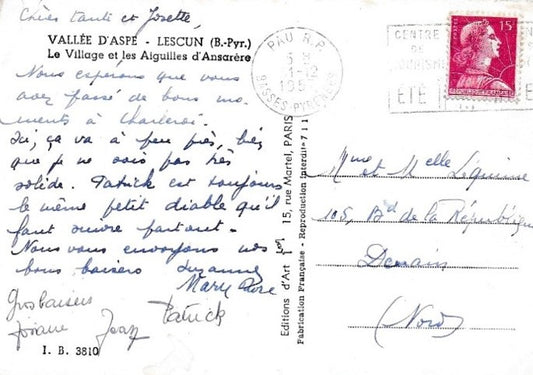 Chère tante et Josette,
VALLÉE D'ASPE - LESCUN (B.-Pyr.)
Le Village et les Aiguilles d'Ansarère
Nous espérons que vous
avez passé de bons mo-
ments à Charleroi.
Ici, ça va à peu près, bien
que je ne sois pas très
solide. Patrick est toujours
le même petit diable qu'il
faut suivre partout.
Nous vous envoyons nos
bons baisers Suzanne
Mary Rose
Gros baisers Patrick
Josiane Jean
I. B. 3810
Editions d'Art 15, rue Martel, PARIS
Fabrication Française - Reproduction Interdite 711
PAU R.P.
BASSES-PYRENEES
CENTRE
DE
ÉTÉ
15F
REPUBLIQUE FRANÇAISE
Mme et Melle Léquime
105, Bd de la République
Denain
(Nord)